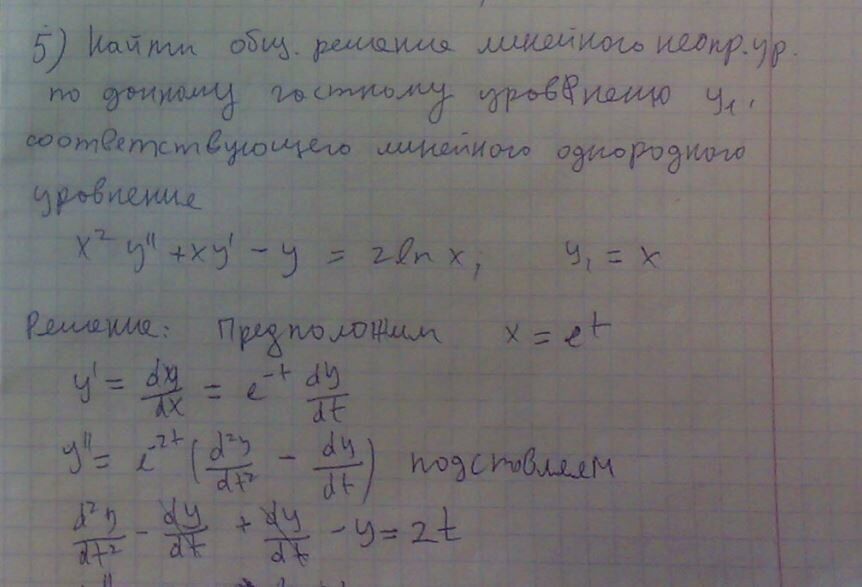 5) Найти общ. решение линейного неопр. ур.
по данному частному уроввнению y₁,
соответствующего линейного однородного
уровнение
x² y'' + xy' - y = 2 ln x; y₁ = x
Решение: Предположим x = e^t
y' = dy/dx = e^-t dy/dt
y'' = e^-2t (d²y/dt² - dy/dt) подставляем
d²y/dt² - dy/dt + dy/dt - y = 2t